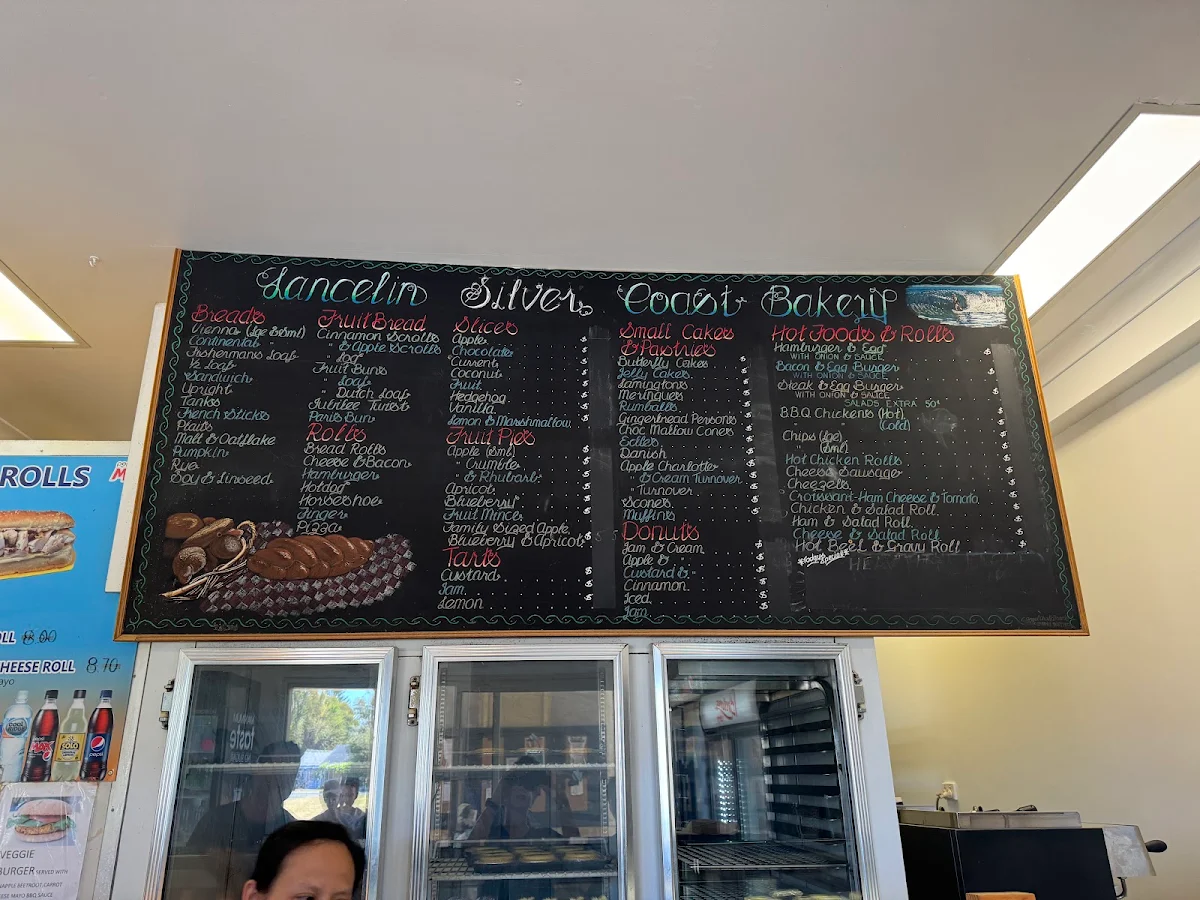 Lancelin Silver Coast Bakery
Breads
Vienna (lge & sml)
Continental "
Fishermans Loaf
½ Loaf
Sandwich
Upright
Tanks
French Sticks
Plaits
Malt & Oatflake
Pumpkin
Rye
Soy & Linseed
Fruit Bread
Cinnamon Scrolls
" & Apple Scrolls
" Log
Fruit Buns
" Loaf
" Dutch Loaf
Jubilee Twist
Paris Bun
Rolls
Bread Rolls
Cheese & Bacon
Hamburger
Hotdog
Horseshoe
Finger
Pizza
Slices
Apple
Chocolate
Currant
Coconut
Fruit
Hedgehog
Vanilla
Lemon & Marshmallow
Fruit Pies
Apple (sml)
" Crumble
" & Rhubarb
Apricot
Blueberry
Fruit Mince
Family Sized Apple,
Blueberry & Apricot
Tarts
Custard
Jam
Lemon
Small Cakes
& Pastries
Butterfly Cakes
Jelly Cakes
Lamingtons
Meringues
Rumballs
Gingerbread Persons
Choc Mallow Cones
Ecller
Danish
Apple Charlotte
" & Cream Turnover
" Turnover
Scones
Muffins
Donuts
Jam & Cream
Apple & "
Custard & "
Cinnamon
Iced
Jam
Hot Foods & Rolls
Hamburger & Egg
WITH ONION & SAUCE
Bacon & Egg Burger
WITH ONION & SAUCE
Steak & Egg Burger
WITH ONION & SAUCE
SALADS EXTRA 50¢
B.B.Q Chickens (Hot)
(Cold)
Chips (lge)
(sml)
Hot Chicken Rolls
Cheese Sausage
Cheezels
Croissant-Ham Cheese & Tomato
Chicken & Salad Roll
Ham & Salad Roll
Cheese & Salad Roll
Hot Beef & Gravy Roll
ROLLS
OLL 8.00
HEESE ROLL 8.70
ayo
COOL
MAX
SOLO
pepsi
VEGGIE
BURGER SERVED WITH
NAPPLE BEETROOT CARROT
ESE MAYO BBQ SAUCE
taste